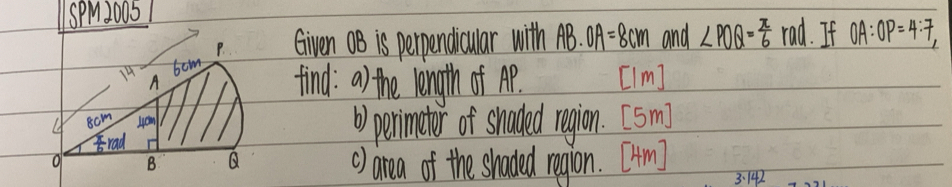 SPM 2005
Given OB is perpendicular with AB. OA=8cm and ∠POQ=π/6 rad. If OA:OP=4:7,
find: a) the length of AP. [1m]
b) perimeter of shaded region. [5m]
c) area of the shaded region. [4m]
14
P
6cm
A
8cm
4cm
π/6 rad
O
B
Q
3.142